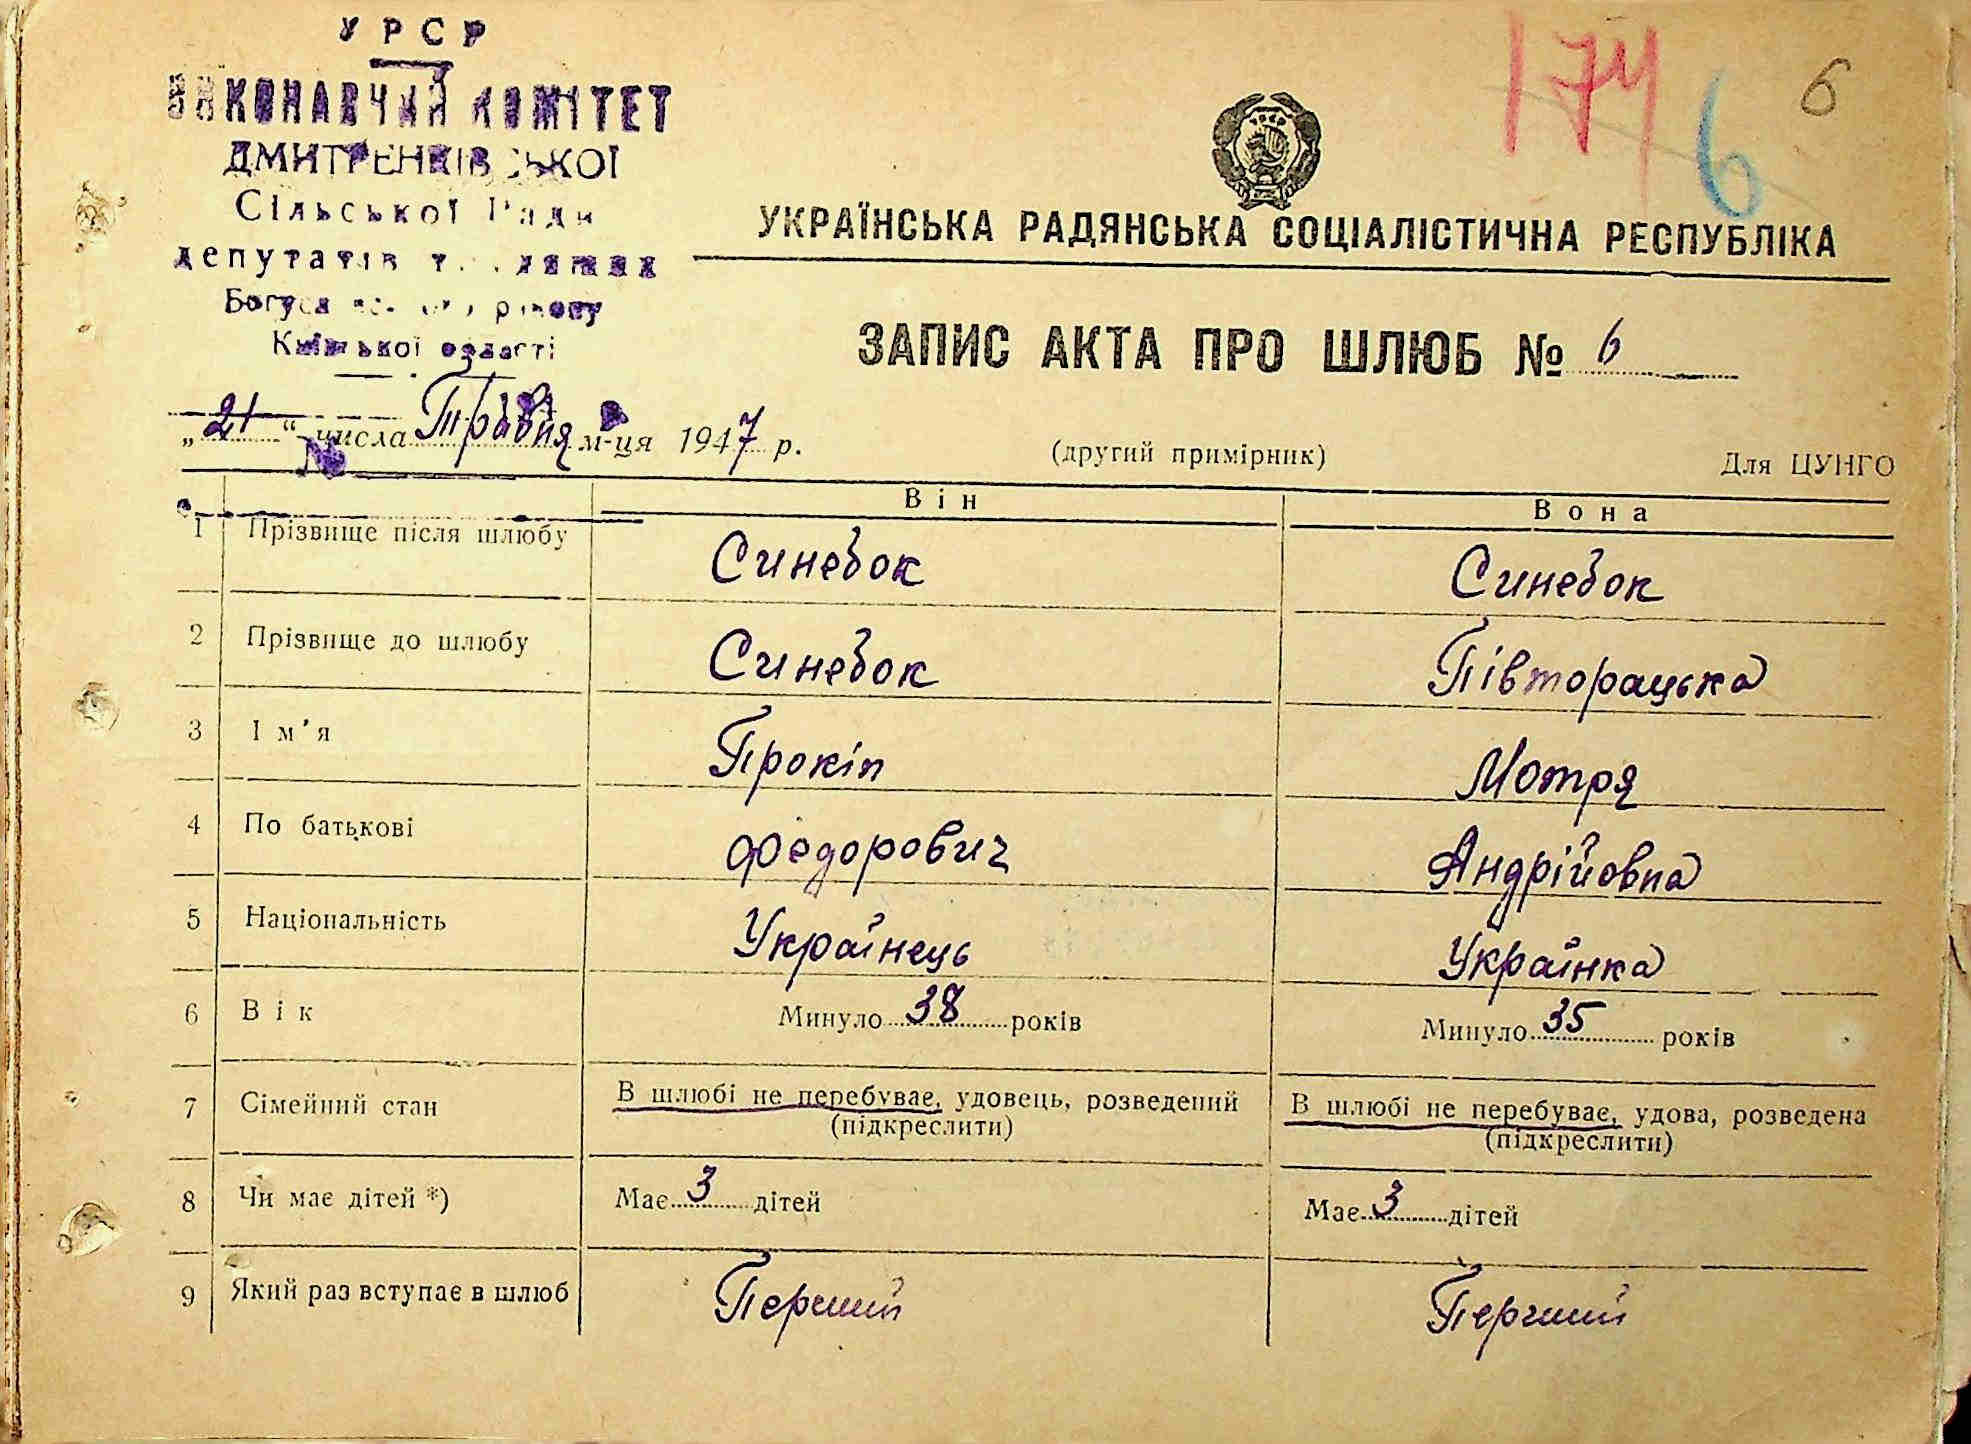 УРСР
ВИКОНАВЧИЙ КОМІТЕТ
ДМИТРЕНКІВСЬКОЇ
Сільської Ради
депутатів
Київської області
№
174
6
6
УКРАЇНСЬКА РАДЯНСЬКА СОЦІАЛІСТИЧНА РЕСПУБЛІКА
ЗАПИС АКТА ПРО ШЛЮБ № 6
„21“ числа Травня м-ця 1947 р.
(другий примірник)
Для ЦУНГО
Він Вона
1 Прізвище після шлюбу Синебок Синебок
2 Прізвище до шлюбу Синебок Півторацька
3 Ім'я Прокіп Мотря
4 По батькові Федорович Андрійовна
5 Національність Українець Українка
6 Вік Минуло 38 років Минуло 35 років
7 Сімейний стан В шлюбі не перебуває, удовець, розведений В шлюбі не перебуває, удова, розведена
(підкреслити) (підкреслити)
8 Чи має дітей *) Має 3 дітей Має 3 дітей
9 Який раз вступає в шлюб Перший Перший